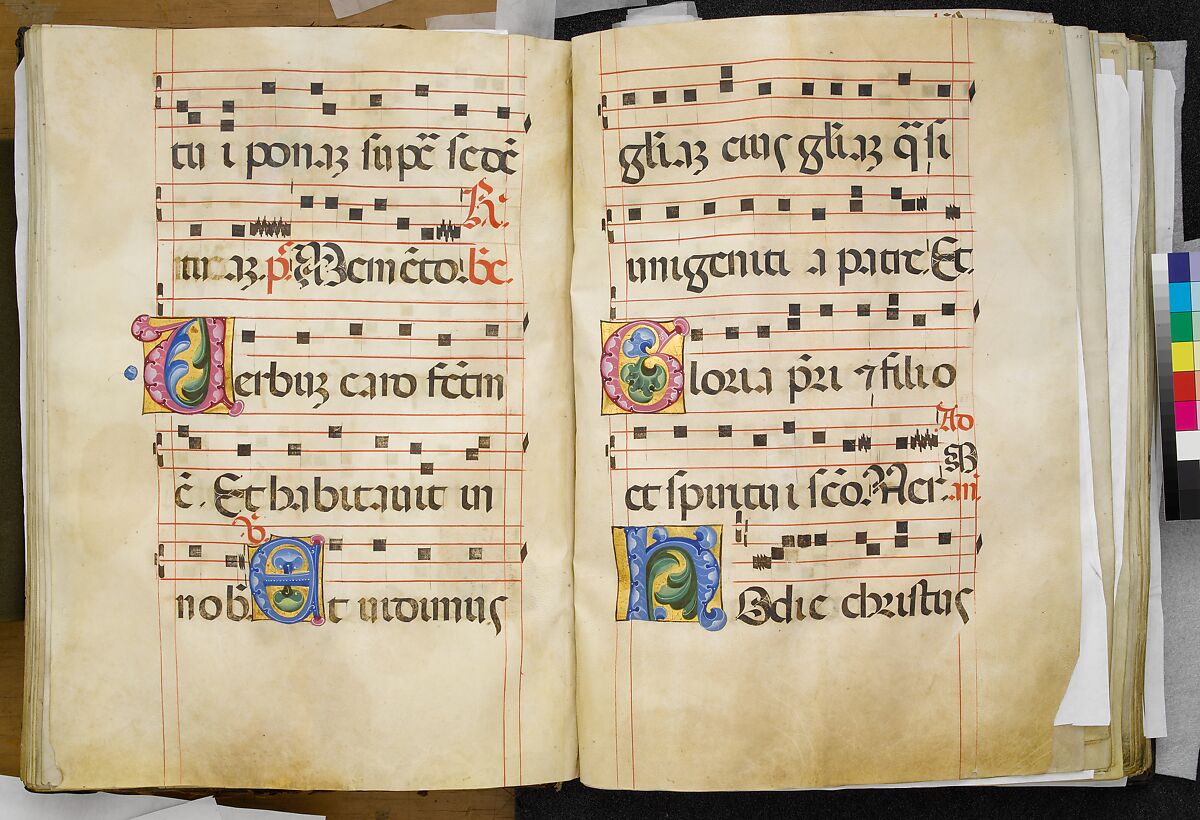 tu i ponaz sup̄ sedē
tuaz. p̄s Mem̄eto. br̄e
Verbuz caro fc̄tm
ē. Et habitauit in
nob. Et uidimus
gl̄iaz eius gl̄iaz q̄si
unigeniti a patre. Et
Gloria p̄ri ⁊ filio
et spiritui sc̄o. Ad
Hodie christus